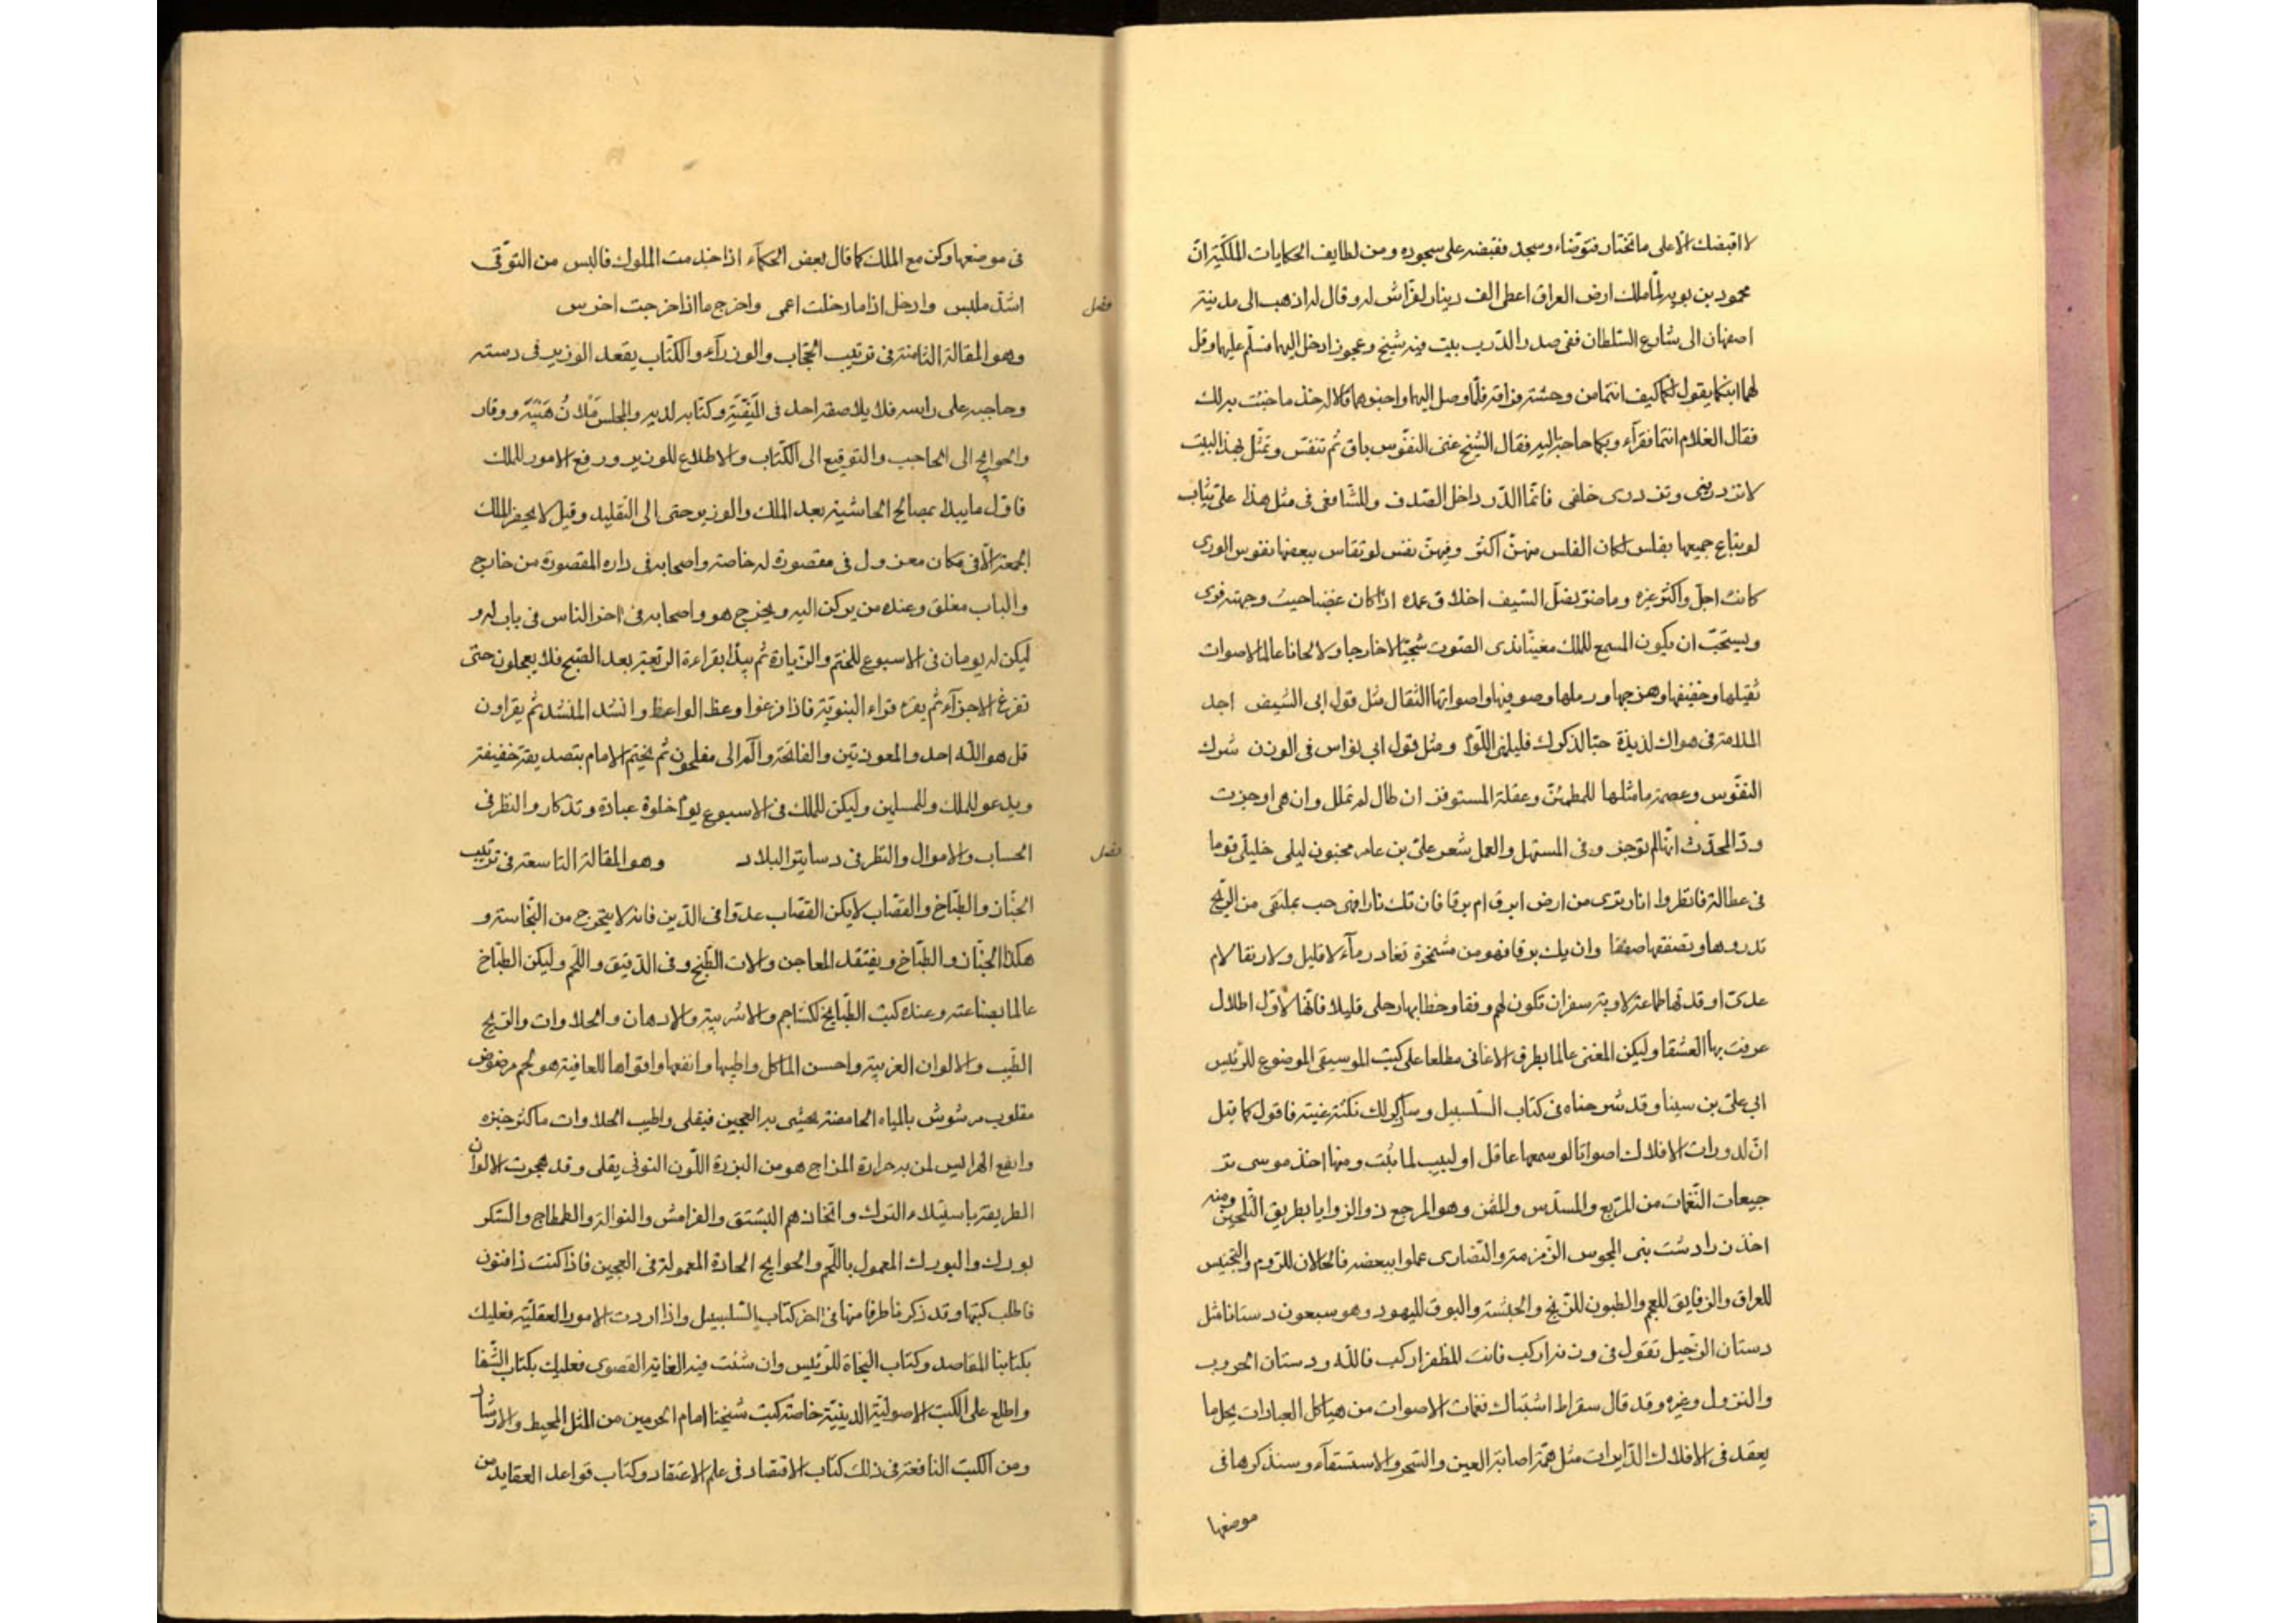 لا اقبضك الا على ما تختار فتوضاء وسجد فقبضه على سجوده ومن لطايف الحكايات الملكية ان
محمود بن بويه لما ملك ارض العراق اعطى الف دينار لفراش له وقال له اذهب الى مدينة
اصفهان الى شارع السلطان ففى صدر الدرب بيت فيه شيخ وعجوز ادخل اليهما فسلم عليهما وقل
لهما ابنكما يقول لكما كيف انتما من وحشة فراقه فلما وصل اليهما واخبرهما قالا له خذ ما جئت به لك
فقال الغلام انتما فقرآء وبكما حاجة اليه فقال الشيخ غنى النفوس باق ثم تنفس وتمثل بهذا البيت
لا تزدرينى وتزدرى خلقى فانما الدر داخل الصدف وللشافعى فى مثل هذا على ثياب
لو يباع جميعها بفلس لكان الفلس منهن اكثر وفيهن نفس لو تقاس ببعضها نفوس الورى
كانت اجل واكثر غيره وما ضر نصل السيف اخلاق غمده اذا كان عضبا حيث وجهته فرى
ويستحب ان يكون المسمع للملك مغنيا ندى الصوت شجيا لا خارجا ولا لحانا عالما لاصوات
ثقيلها وخفيفها وهزجها ورملها وصوفيها واصواتها الثقال مثل قول ابى الشيص اجد
الملامة فى هواك لذيذة حبا لذكرك فليلمنى اللوم ومثل قول ابى نواس فى الوزن شرك
النفوس وعصمة ما مثلها للمطمئن وعقلة المستوفز ان طال لم تملل وان هى اوجزت
ود المحدث انها لم توجز وفى المستهل والعمل شعر على بن عامر مجنون ليلى خليلى قوما
فى عطالة فانظروا انار ترى من ارض ابرق ام برقا فان تك نارا فهى حب بملتقى من الريح
تدروها وتصفقها صفقا وان يك برقا فهو من مشمخرة تغادر مآء لا قليل ولا رنقا لام
على اوقدتها طماعة لاوبة سفر ان تكون لهم وفقا وحطا بها رحلى قليلا فانها لاول اطلال
عرفت بها العشقا وليكن المغنى عالما بطرق الاغانى مطلعا على كتب الموسيقى الموضوع للرئيس
ابى على بن سينا وقد شرحناه فى كتاب السلسبيل وساذكر لك نكتة غنية فاقول كما قيل
ان لدورات الافلاك اصواتا لو سمعها عاقل او لبيب لما ثبت ومنها اخذ موسى تر
جيعات النغمات من المربع والمسدس والمثمن وهو المرجع ذو الزوايا بطريق التلحين ومنه
اخذ زرادشت بنى المجوس الزمزمة والنصارى عملوا ببعضه فالحالان للروم والتجنيس
للعراق والزفايق للعجم والطبون للزنج والحبشة والبوق لليهود وهو سبعون دستانا مثل
دستان الرحيل تقول فى وزنه اركب فانت المظفر اركب فالله ودستان الحروب
والنزول وغيره وقد قال سقراط اشتباك نغمات الاصوات من هياكل العبادات يحل ما
يعقد فى الافلاك الدايرات مثل همة اصابة العين والسحر والاستسقآء وسنذكرها فى
موضعها
فى موضعها وكن مع الملك كما قال بعض الحكمآء اذا خدمت الملوك فالبس من التوقى
اشد ملبس وادخل اذا ما دخلت اعمى واخرج ما اذا خرجت اخرس
فصل
وهو المقالة الثامنة فى ترتيب الحجاب والوزرآء والكتاب يقعد الوزير فى دسته
وحاجبه على راسه فلا يلاصقه احد فى المتقية وكتابه لديه والمجلس ملان هيبة ووقار
والحوايج الى الحاجب والتوقيع الى الكتاب والاطلاع للوزير ورفع الامور للملك
فاول ما يبدا بمصالح الحاشية بعد الملك والوزير حتى الى التقليد وقيل لا يحضر الملك
الجمعة الا فى مكان معزول فى مقصورة له خاصة واصحابه فى داره المقصورة من خارج
والباب مغلق وعنده من يركن اليه ويخرج هو واصحابه فى اخر الناس فى باب له و
ليكن له يومان فى الاسبوع للختم والزيارة ثم يبدا بقراءة الربعة بعد الصبح فلا يعجلون حتى
تفرغ الاجزآء ثم يقره قراء النبوية فاذا فرغوا وعظ الواعظ وانشد المنشد ثم يقراون
قل هو الله احد والمعوذتين والفاتحة والم الى مفلحون ثم يختم الامام بتصديقة خفيفة
ويدعو للملك وللمسلمين وليكن للملك فى الاسبوع يوم خلوة عبادة وتذكار والنظر فى
الحساب والاموال والنظر فى دساتير البلاد وهو المقالة التاسعة فى ترتيب
فصل
الخباز والطباخ والقصاب لا يكن القصاب عدوا فى الدين فانه لا يتحرج من النجاسة و
هكذا الخباز والطباخ ويفتقد المعاجن والات الطبخ وفى الدقيق واللحم وليكن الطباخ
عالما بصناعته وعنده كتب الطبايخ لكشاجم والاشربة والادهان والحلاوات والريح
الطيب والالوان الغريبة واحسن الماكل واطيبها وانفعها واقواها للعافية هو لحم مرضوض
مقلوب مرشوش بالمياه الحامضة يحشى به العجين فيقلى واطيب الحلاوات ما كثر خبزه
وانفع الهرايس لمن به حرارة المزاج هو من البزرة اللون النوفى يقلى وقد هجرت الالوان
الطريفة باستيلاء الترك واتخاذهم البشتق والفرامش والنوالة والططماج والسكر
بورك والبورك المعمول باللحم والحوايج الحادة المعمولة فى العجين فاذا كنت ذا فنون
فاطلب كتبها وقد ذكرنا طرفا منها فى اخر كتاب السلسبيل واذا اردت الامور العقلية فعليك
بكتابنا المقاصد وكتاب النجاة للرئيس وان شئت فيه الغاية القصوى فعليك بكتاب الشفا
واطلع على الكتب الاصولية الدينية خاصة كتب شيخنا امام الحرمين من المثل المحيط والارشاد
ومن الكتب النافعة فى ذلك كتاب الاقتصاد فى علم الاعتقاد وكتاب قواعد العقايد من